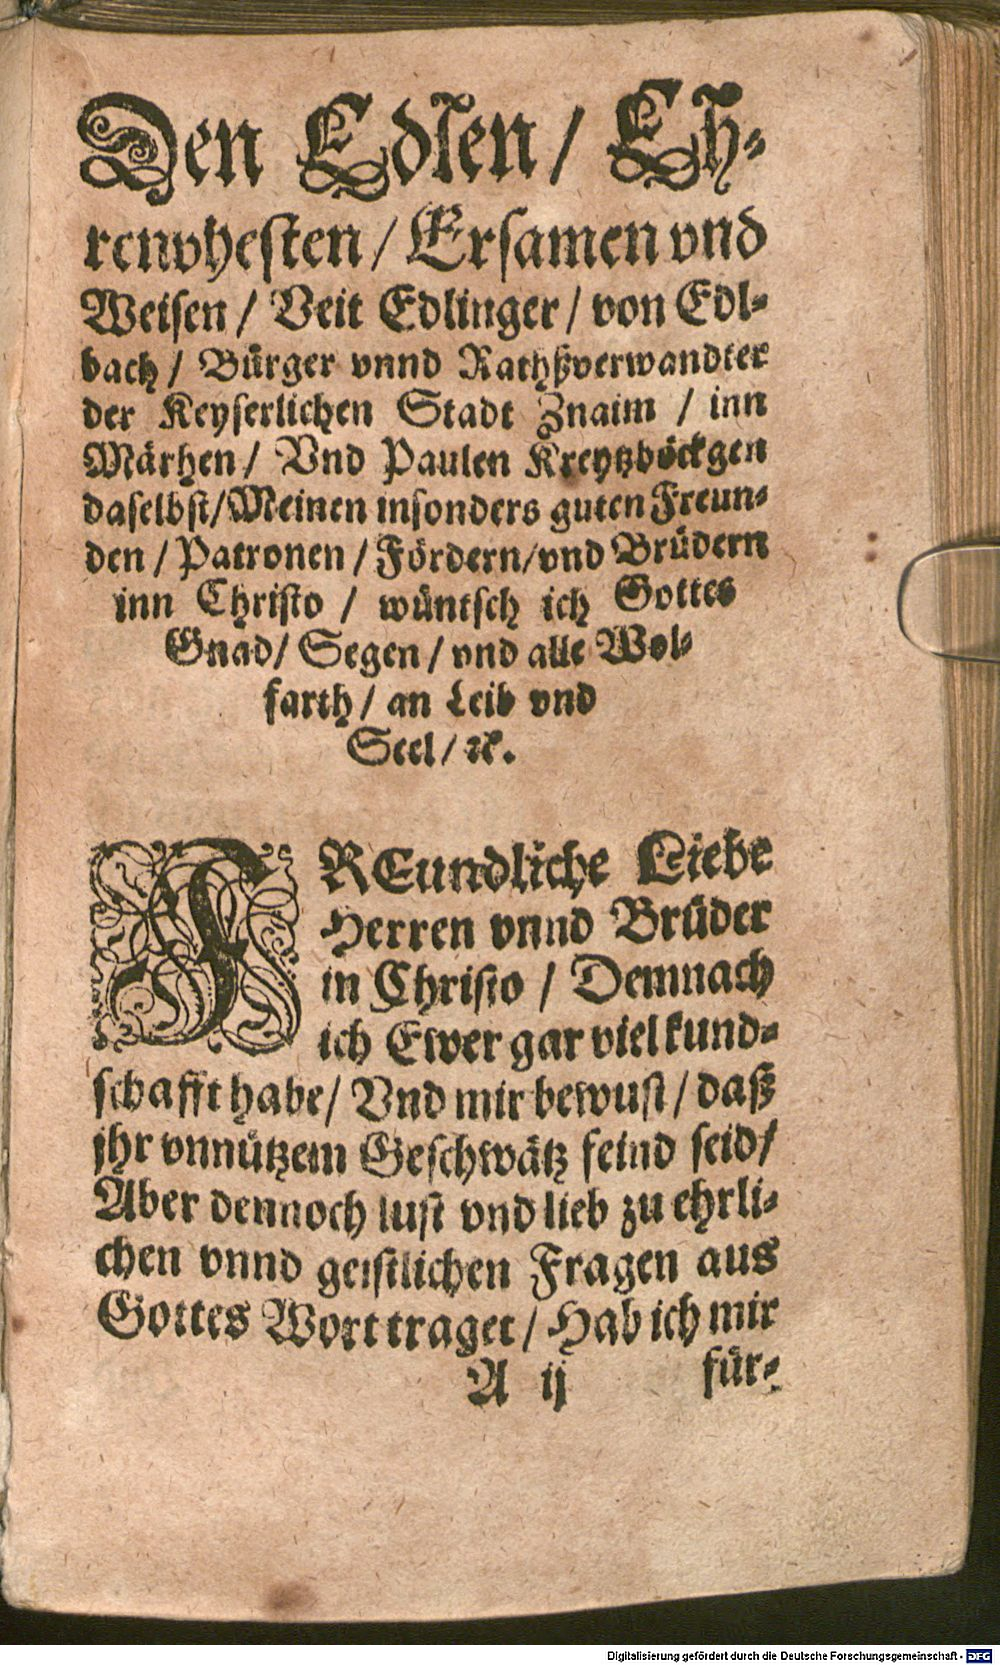 Den Edlen / Eh-
renvhesten / Ersamen vnd
Weisen / Veit Edlinger / von Edl-
bach / Bürger vnnd Rathßverwandter
der Keyserlichen Stadt Znaim / inn
Märhen / Vnd Paulen Kreytzböckgen
daselbst / Meinen insonders guten Freun-
den / Patronen / Fördern / vnd Brüdern
inn Christo / wüntsch ich Gottes
Gnad / Segen / vnd alle Wol-
farth / an Leib vnd
Seel / ꝛc.
FREundliche Liebe
Herren vnnd Brüder
in Christo / Demnach
ich Ewer gar viel kund-
schafft habe / Vnd mir bewust / daß
jhr vnnützem Geschwätz feind seid /
Aber dennoch lust vnd lieb zu ehrli-
chen vnnd geistlichen Fragen aus
Gottes Wort traget / Hab ich mir
A ij für-
Digitalisierung gefördert durch die Deutsche Forschungsgemeinschaft - DFG